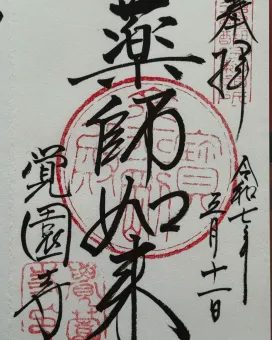 奉拝
令和七年五月十一日
薬師如来
覚園寺